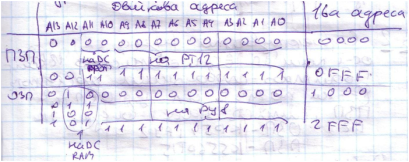 Двійкова адреса 16ва адреса
A13 A12 A11 A10 A9 A8 A7 A6 A5 A4 A3 A2 A1 A0
ПЗП 0 0 0 0 0 0 0 0 0 0 0 0 0 0 0000
на DC на РТ12
0 0 1 1 1 1 1 1 1 1 1 1 1 1 0FFF
ОЗП 0 1 0 0 0 0 0 0 0 0 0 0 0 0 1000
0 1 1
1 0 0 на РУ8
1 0 1 1 1 1 1 1 1 1 1 1 1 1 2FFF
на DC
RAM